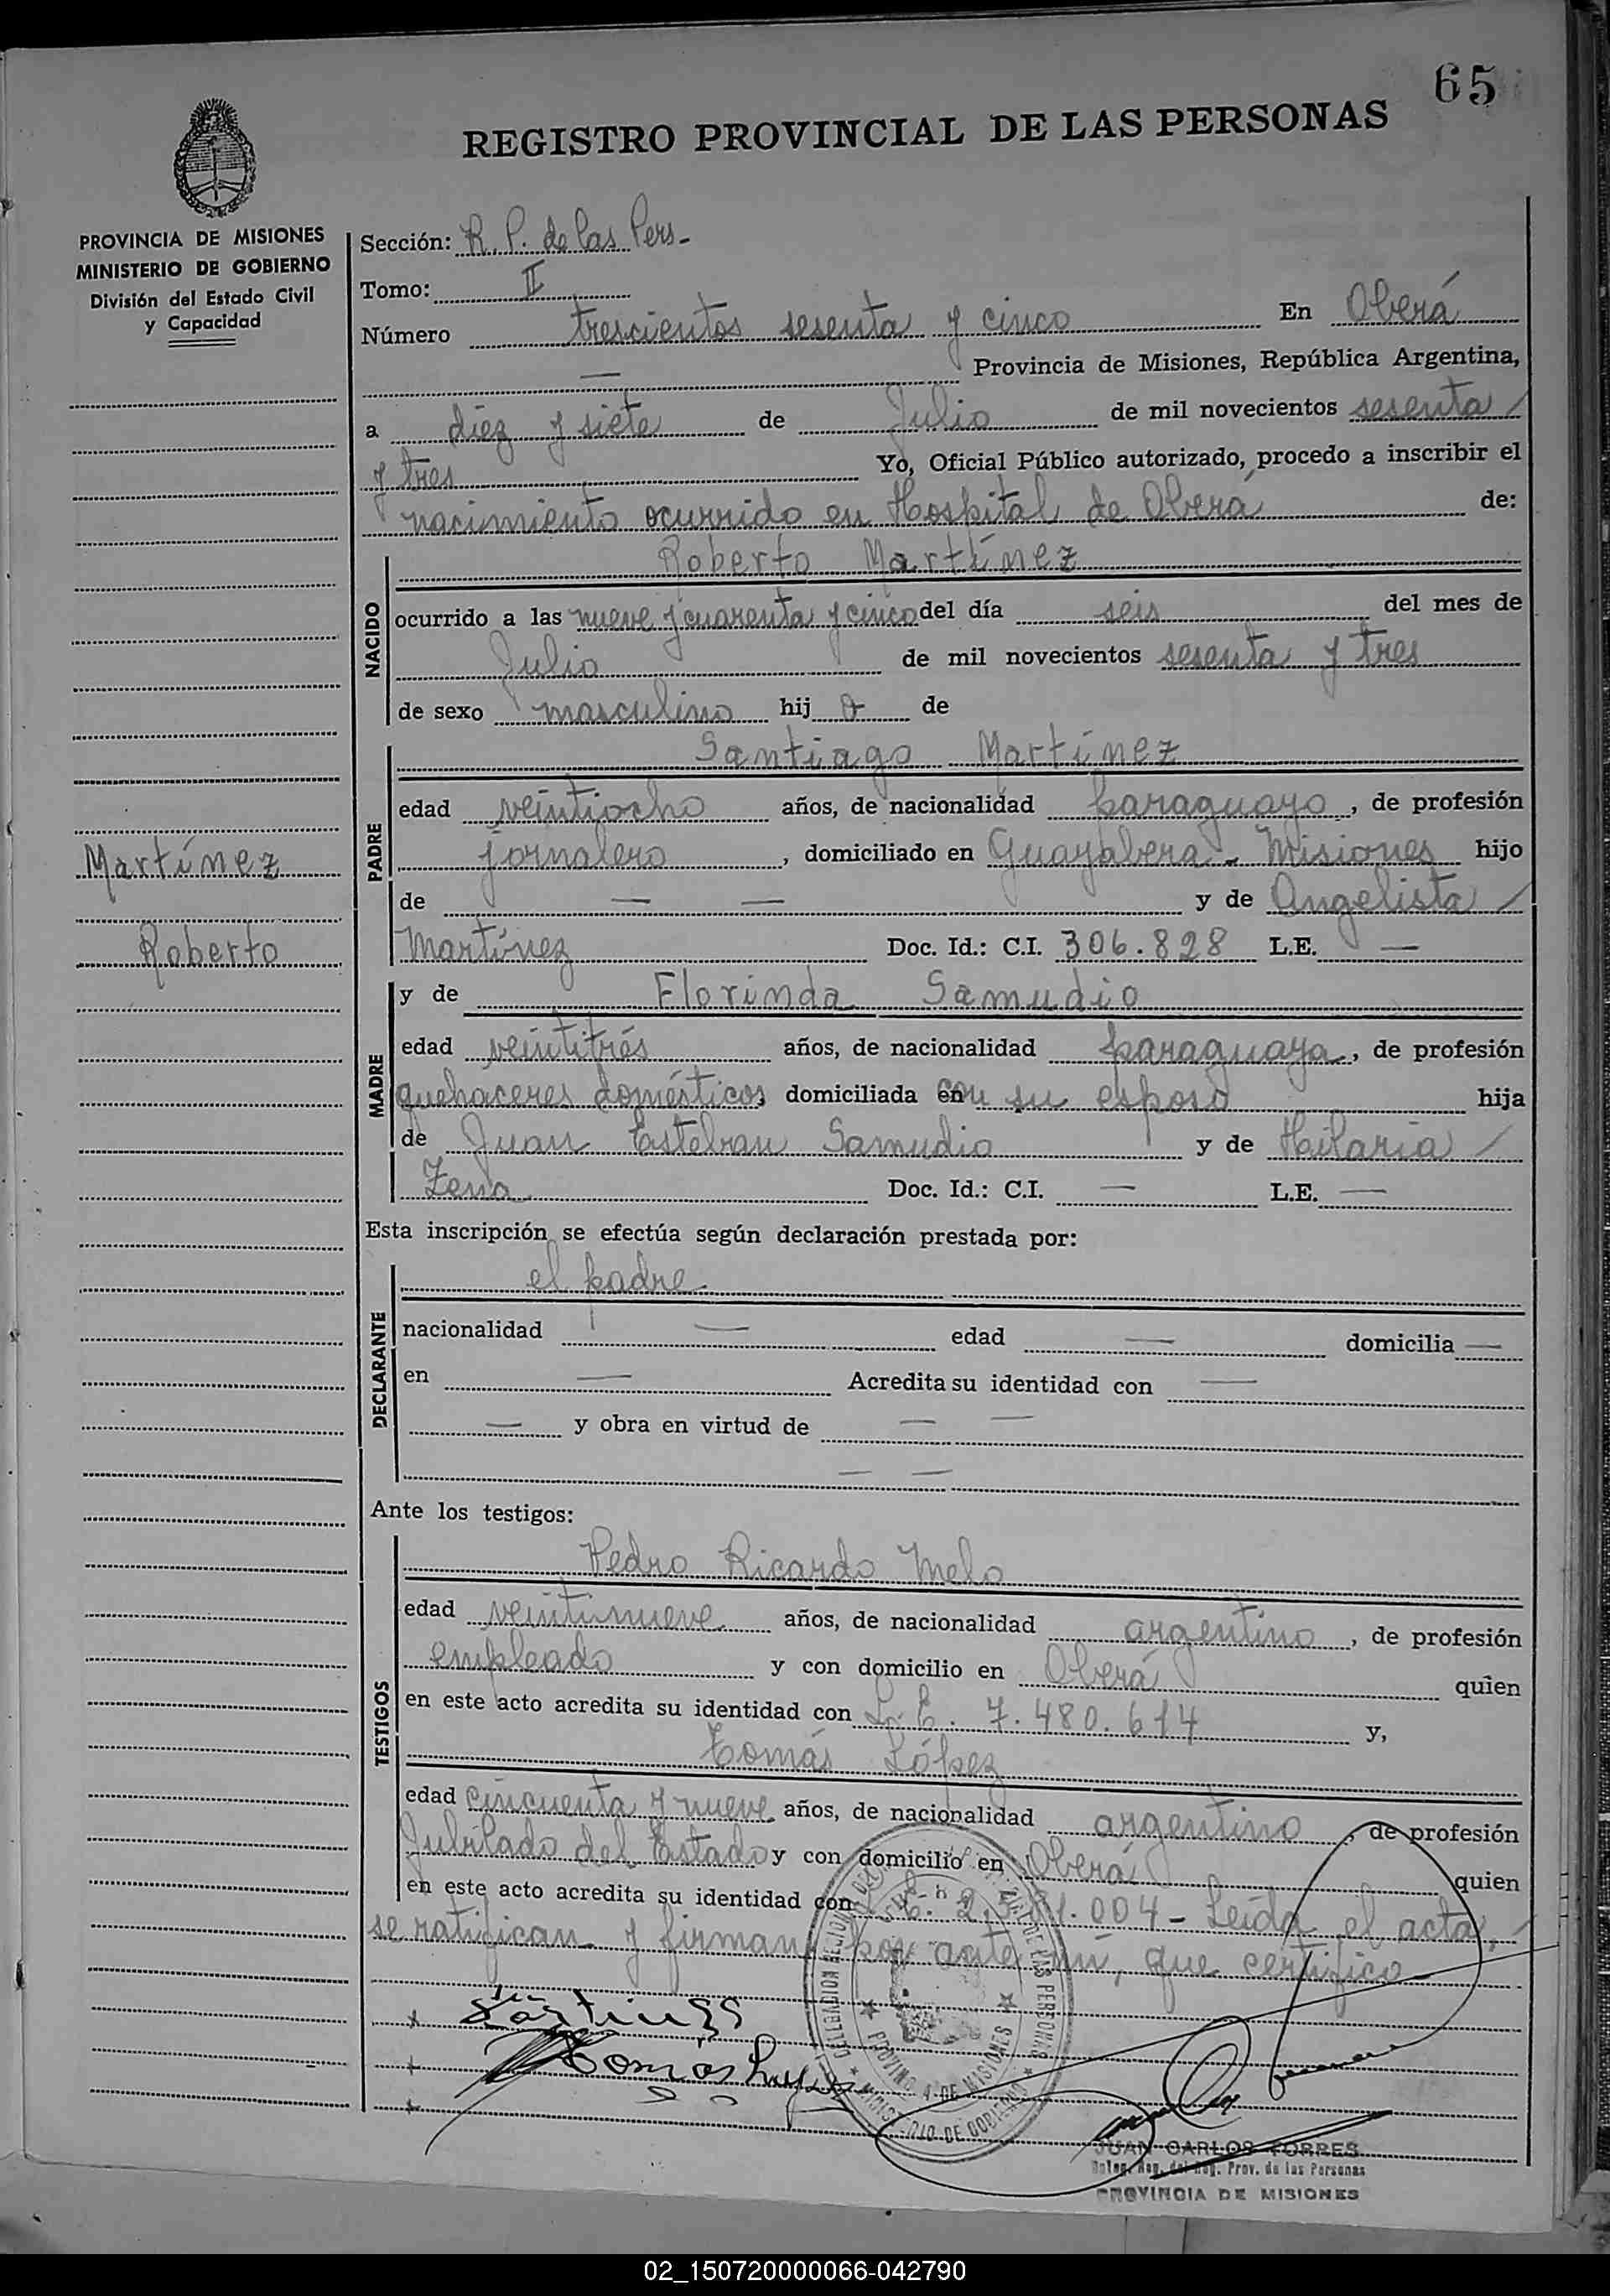 65
REGISTRO PROVINCIAL DE LAS PERSONAS
PROVINCIA DE MISIONES
MINISTERIO DE GOBIERNO
División del Estado Civil
y Capacidad
Sección: R. P. de las Pers-
Tomo: II
Número trescientos sesenta y cinco En Oberá
— Provincia de Misiones, República Argentina,
a diez y siete de Julio de mil novecientos sesenta /
y tres Yo, Oficial Público autorizado, procedo a inscribir el
nacimiento ocurrido en Hospital de Oberá de:
NACIDO
Roberto Martínez
ocurrido a las nueve y cuarenta y cinco del día seis del mes de
Julio de mil novecientos sesenta y tres
de sexo masculino hij o de
PADRE
Santiago Martínez
edad veintiocho años, de nacionalidad paraguayo, de profesión
jornalero, domiciliado en Guayabera - Misiones hijo
de — — y de Angelista /
Martínez Doc. Id.: C.I. 306.828 L.E. —
Martínez
Roberto
MADRE
y de Florinda Samudio
edad veintitrés años, de nacionalidad paraguaya, de profesión
quehaceres domésticos domiciliada con su esposo hija
de Juan Esteban Samudio y de Hilaria /
Zena Doc. Id.: C.I. — L.E. —
Esta inscripción se efectúa según declaración prestada por:
DECLARANTE
el padre
nacionalidad — edad — domicilia —
en — Acredita su identidad con —
— y obra en virtud de — —
— —
Ante los testigos:
TESTIGOS
Pedro Ricardo Melo
edad veintinueve años, de nacionalidad argentino, de profesión
empleado y con domicilio en Oberá quien
en este acto acredita su identidad con L. E. 7.480.614 y,
Tomás López
edad cincuenta y nueve años, de nacionalidad argentino, de profesión
Jubilado del Estado y con domicilio en Oberá quien
en este acto acredita su identidad con 004 - Leída el acta, /
se ratifican y firman por ante mí, que certifico
Tomás
PROVINCIA DE MISIONES
MINISTERIO DE GOBIERNO
JUAN CARLOS TORRES
Deleg. Reg. del Reg. Prov. de las Personas
PROVINCIA DE MISIONES
02_150720000066-042790